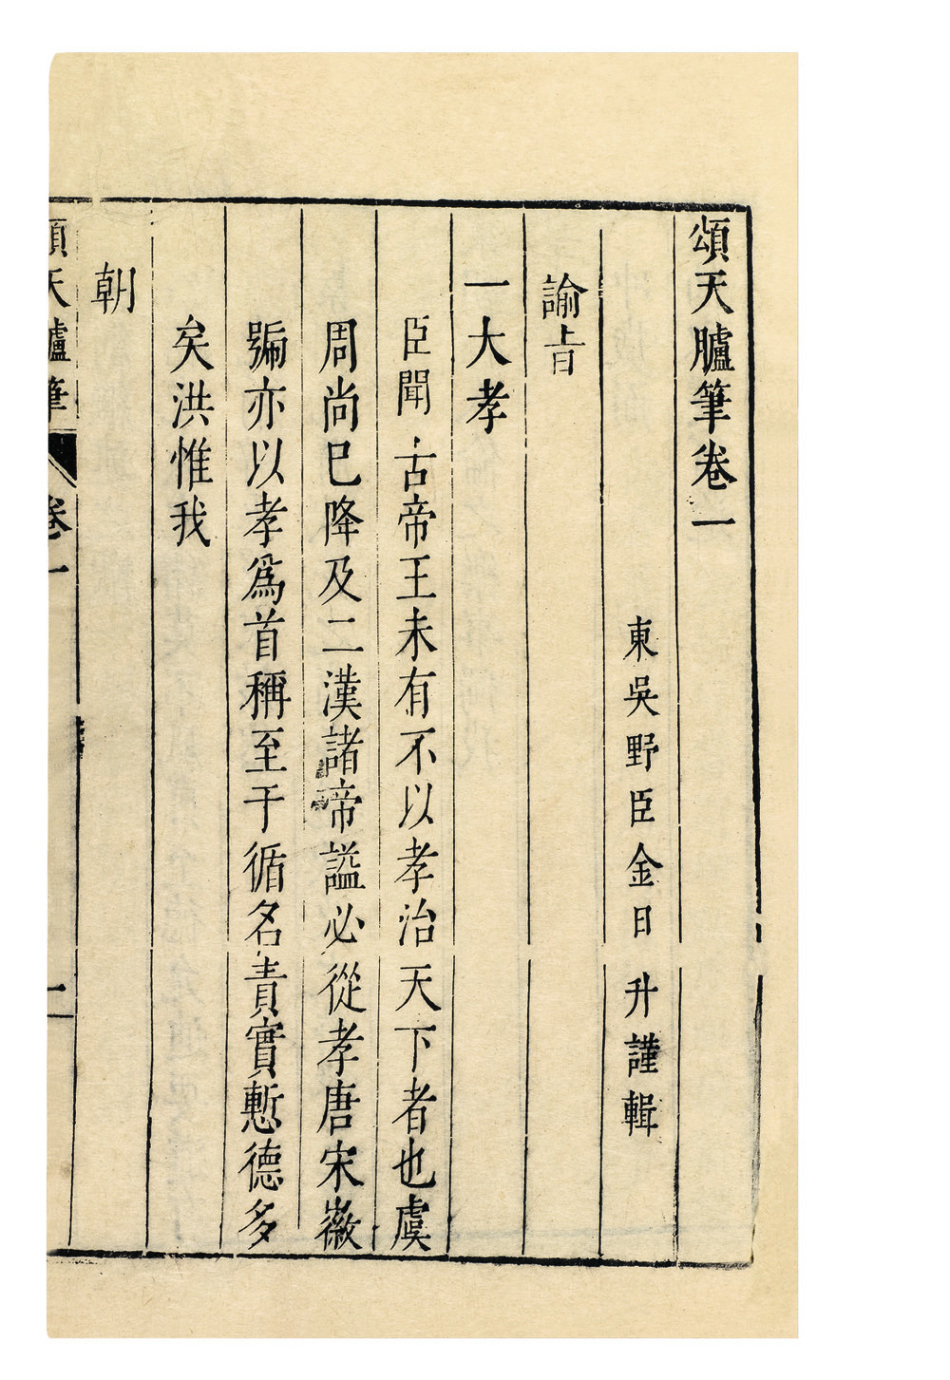 頌天臚筆卷一
東吳野臣金日升謹輯
諭旨
一大孝
臣聞古帝王未有不以孝治天下者也虞
周尚巳降及二漢諸帝謚必從孝唐宋徽
號亦以孝爲首稱至于循名責實慙德多
矣洪惟我
朝
頌天臚筆 卷一 一